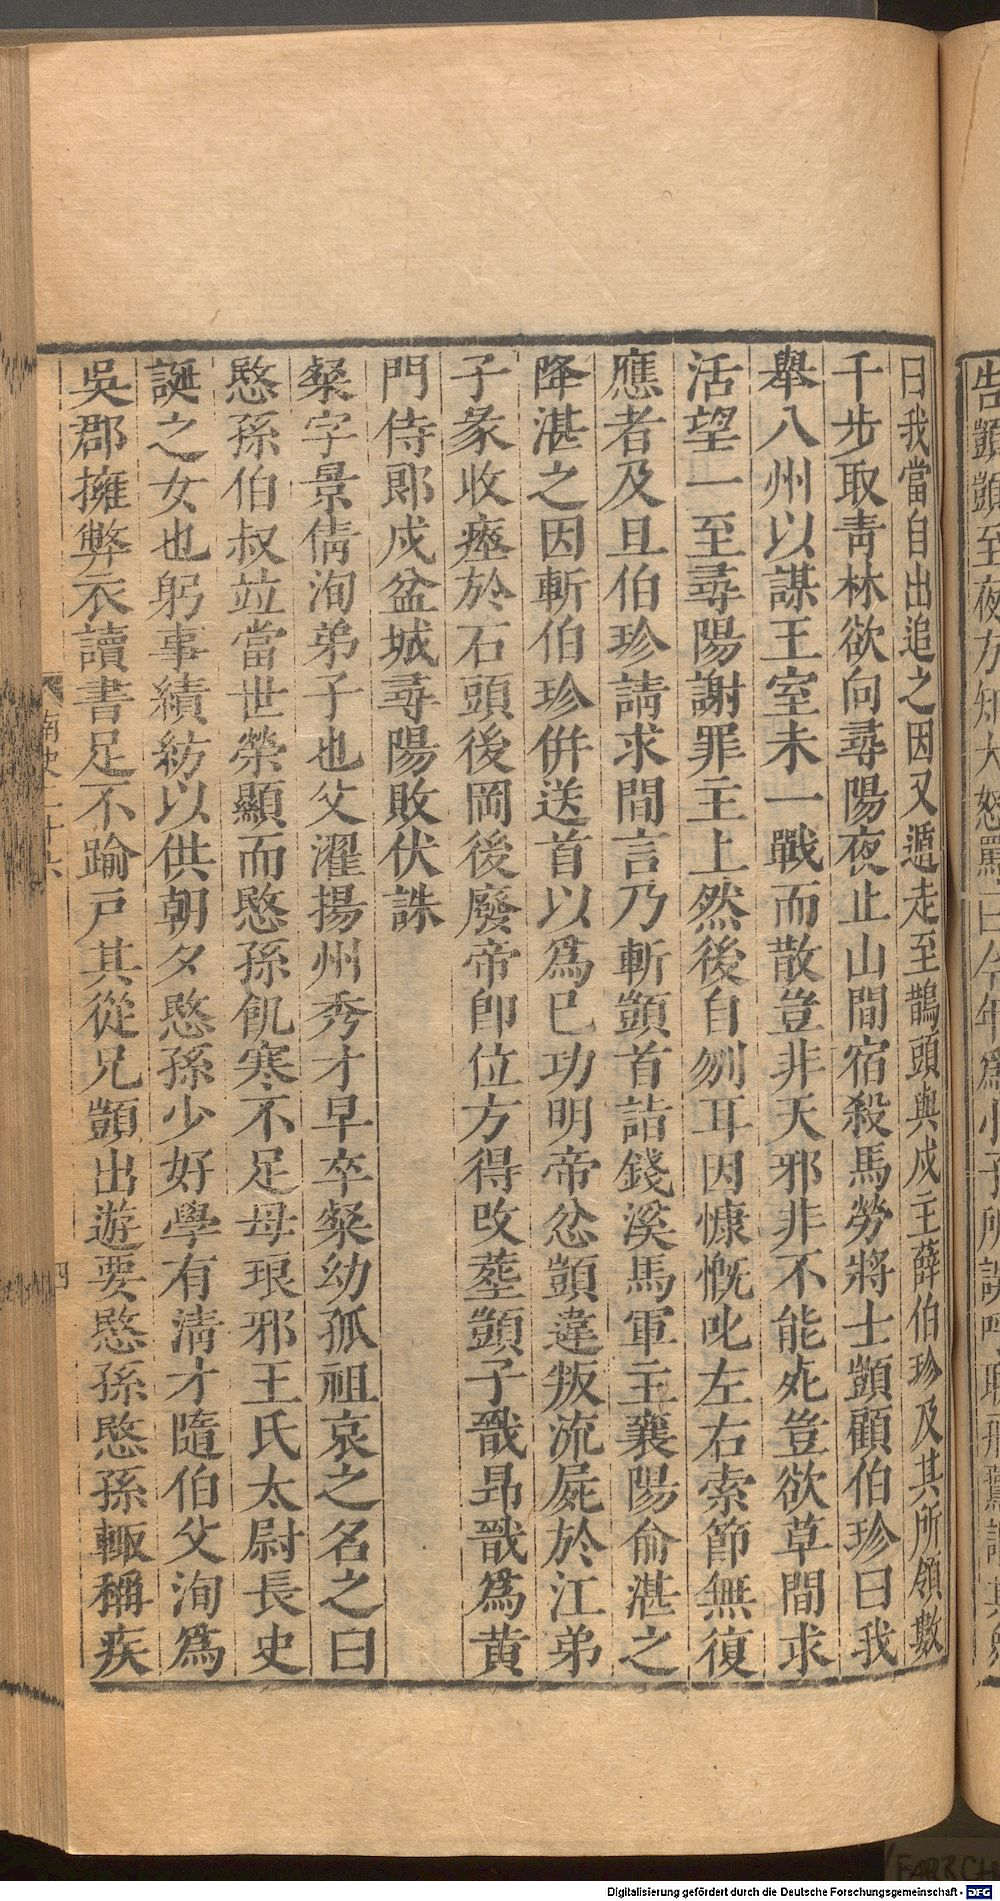 曰我當自出追之因又遁走至鵲頭與戍主薛伯珍及其所領數
千步取靑林欲向尋陽夜止山間宿殺馬勞將士顗顧伯珍曰我
舉八州以謀王室未一戰而散豈非天邪非不能死豈欲草間求
活望一至尋陽謝罪主上然後自刎耳因慷慨叱左右索節無復
應者及旦伯珍請求間言乃斬顗首詣錢溪馬軍主襄陽俞湛之
降湛之因斬伯珍併送首以爲己功明帝忿顗違叛流屍於江弟
子彖收瘞於石頭後岡後廢帝卽位方得改塟顗子戩昻戩爲黄
門侍郎戍盆城尋陽敗伏誅
粲字景倩洵弟子也父濯揚州秀才早卒粲幼孤祖哀之名之曰
愍孫伯叔竝當世榮顯而愍孫飢寒不足母琅邪王氏太尉長史
誕之女也躬事績紡以供朝夕愍孫少好學有淸才隨伯父洵爲
吳郡擁弊衣讀書足不踰戸其從兄顗出遊要愍孫愍孫輙稱疾
南史二十六
四
告顗顗至夜方知大怒罵曰今年爲小子所誤呼取飛鷰謂其
Digitalisierung gefördert durch die Deutsche Forschungsgemeinschaft - DFG